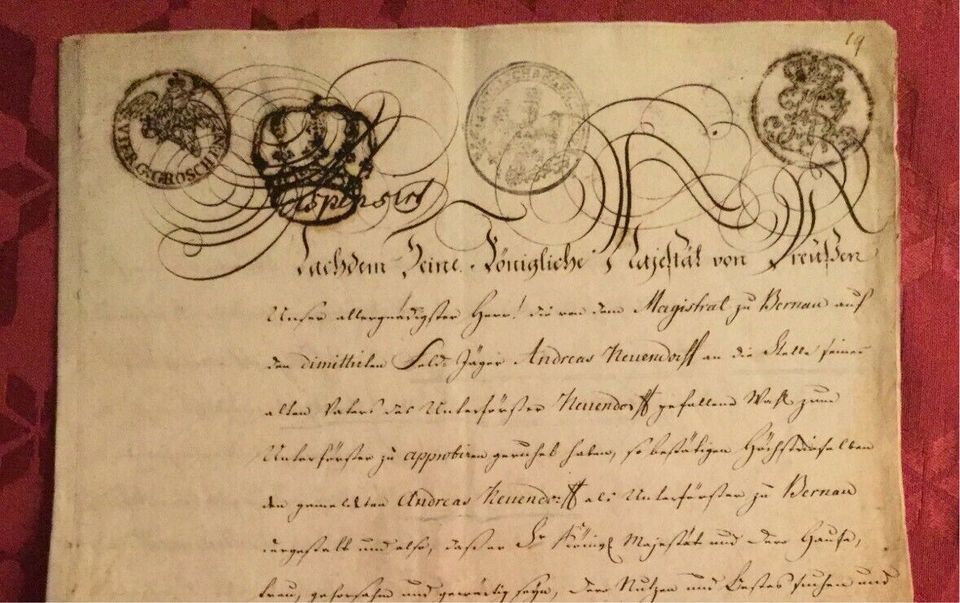 19
VIER G. GROSCHEN
Nachdem Seine Königliche Majestät von Preußen
Unser allergnädigster Herr! die von dem Magistrat zu Bernau auf
den dimittirten Feld-Jäger Andreas Neuendorff an die Stelle seines
alten Vaters des Unterförster Neuendorff gefallene Wahl zum
Unterförster zu approbiren geruhet haben, so bestätigen Höchstdieselben
den gemeldeten Andreas Neuendorff als Unterförster zu Bernau
dergestalt und also, daß er Sr Königl Majestät und Dero Hause,
treu, gehorsahm und gewärtig seyn, Dero Nutzen und Bestes suchen und